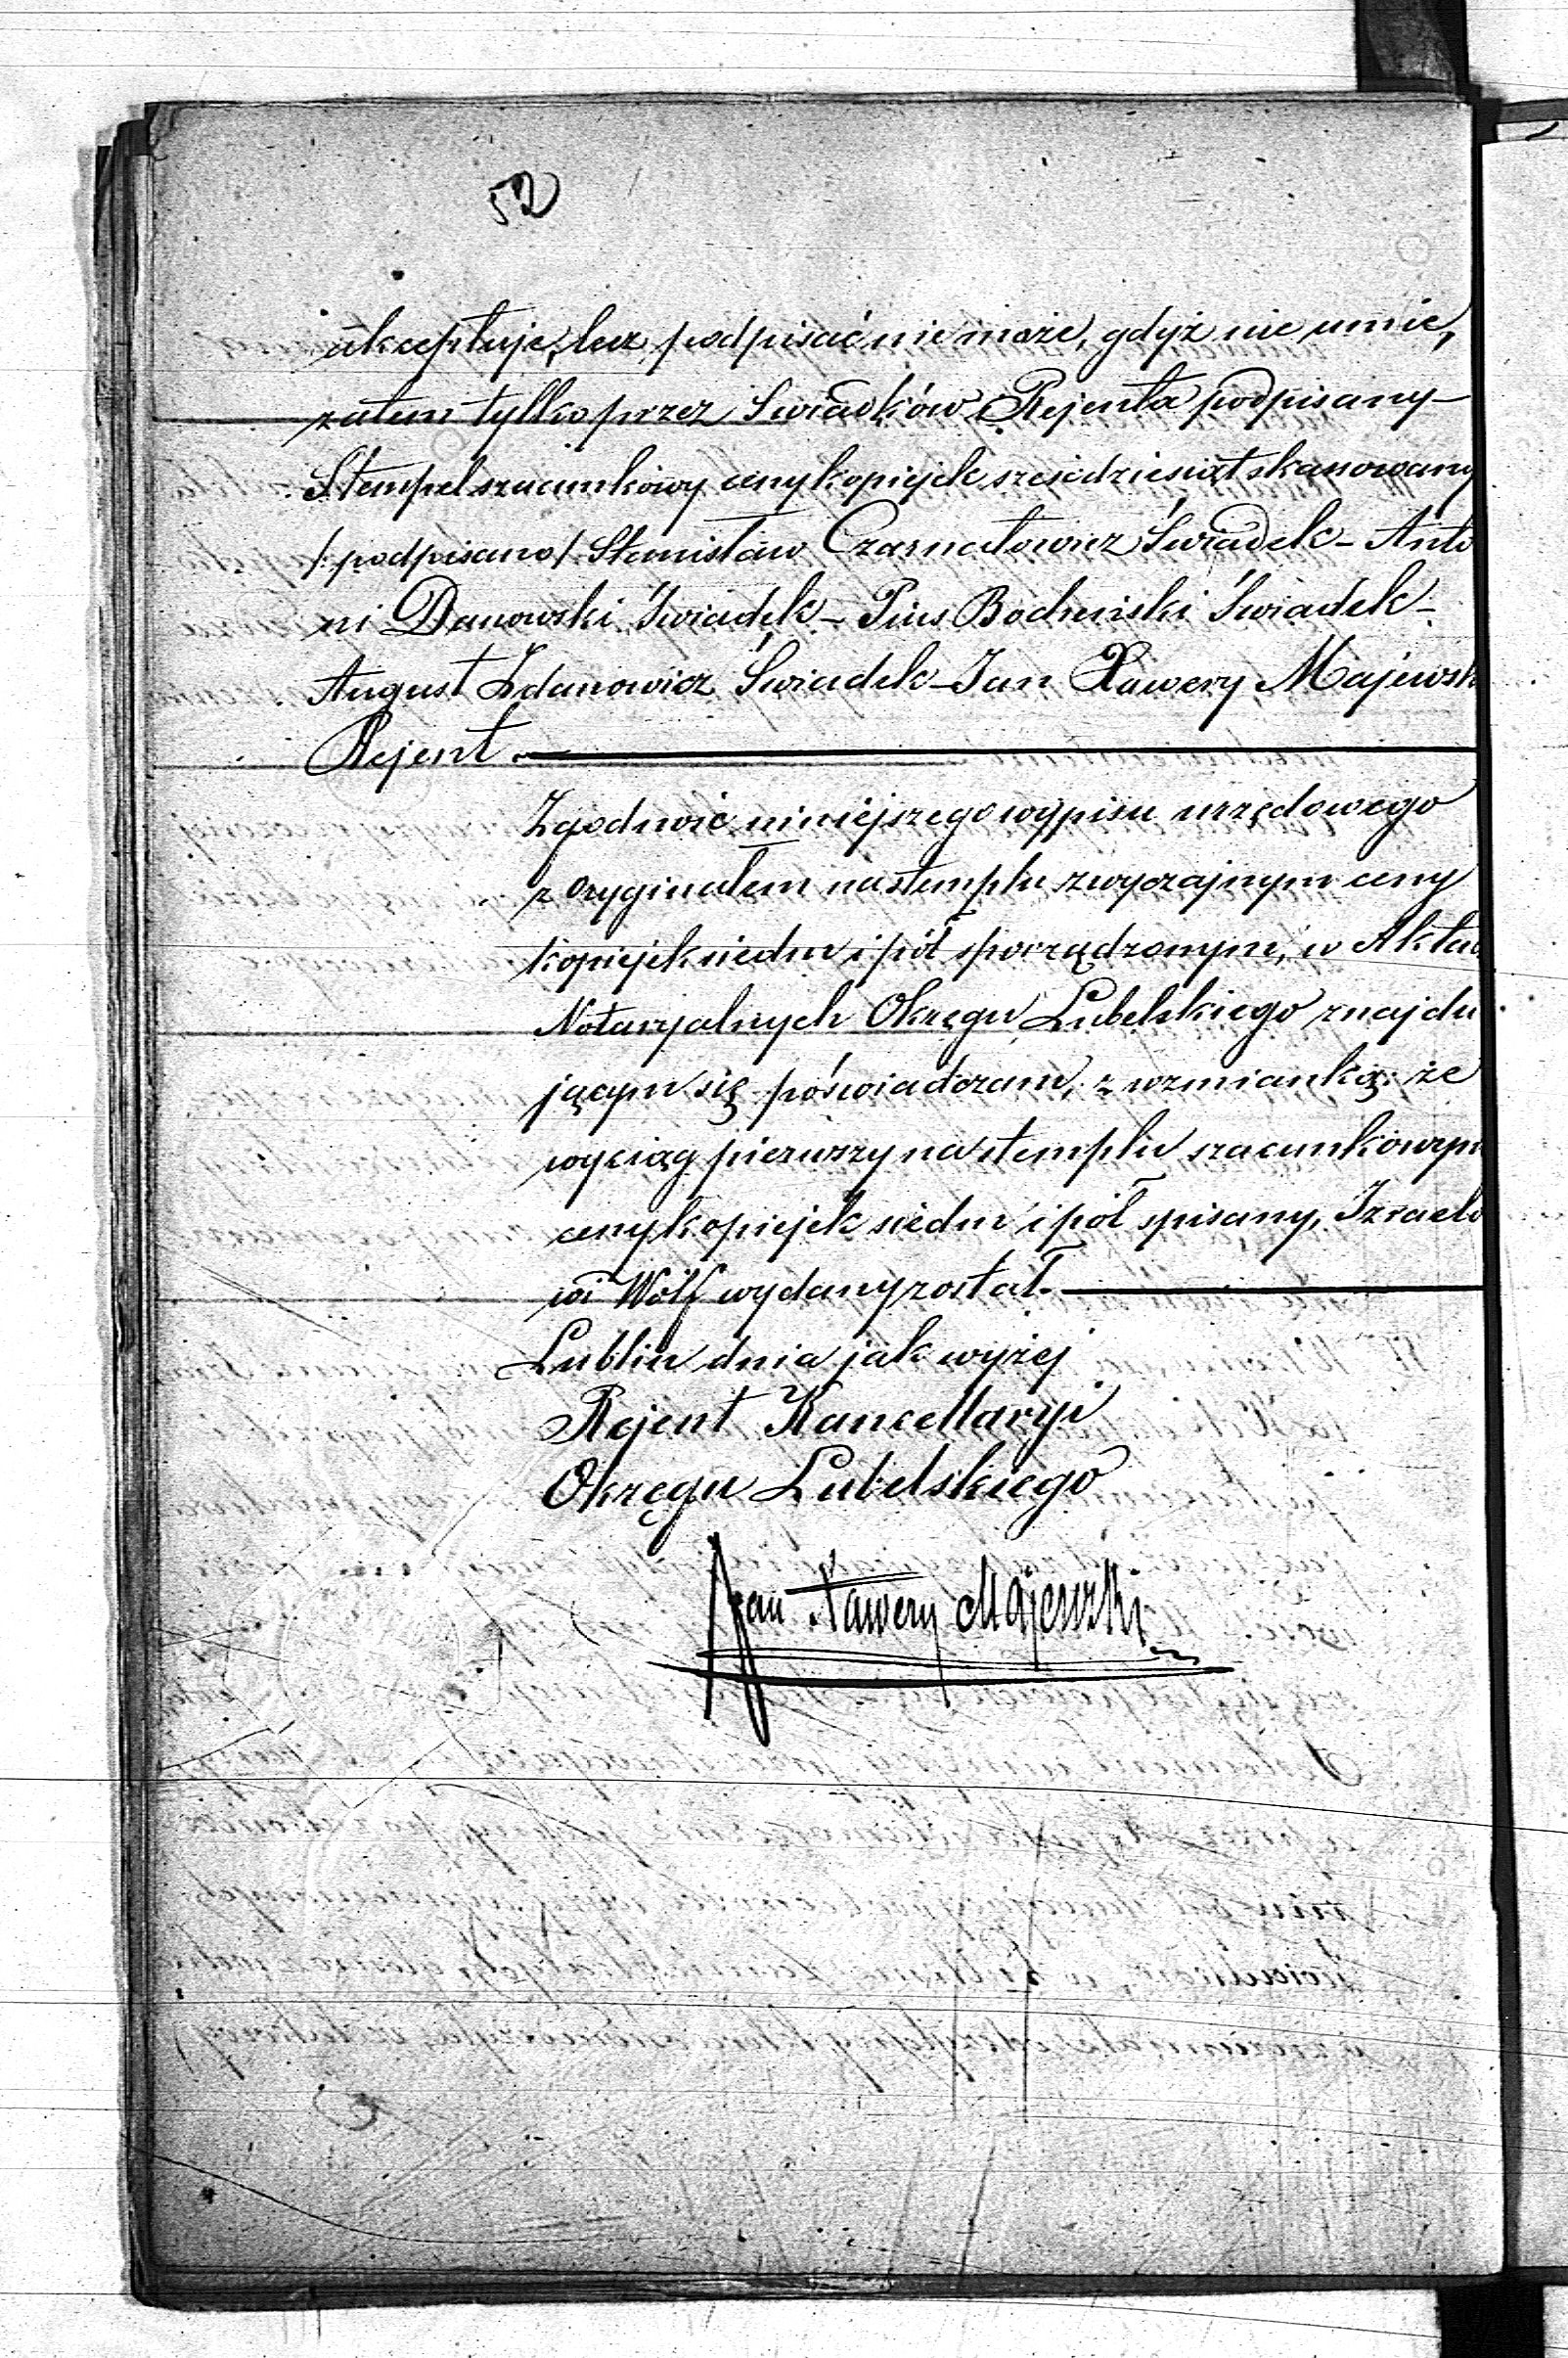 52
akceptuje, lecz podpisać nie może, gdyż nie umie,
zatem tylko przez Świadków i Rejenta podpisany –
Stempel szacunkowy ceny kopiejek sześćdziesiąt skasowany
/: podpisano / Stanisław Czarnatowicz Świadek – Anto
ni Danowski Świadek – Pius Bocheński Świadek –
August Zdanowicz Świadek – Jan Xawery Majewsk
Rejent.
Zgodność niniejszego wypisu urzędowego
z oryginałem na stemplu zwyczajnym ceny
kopiejek siedm i pół sporządzonym, w Aktac
Notaryalnych Okręgu Lubelskiego znajdu
jącym się poświadczam, z wzmianką: że
wyciąg pierwszy na stemplu szacunkowym
ceny kopiejek siedm i pół spisany, Izraelo
wi Wolf wydany został.
Lublin dnia jak wyżej
Rejent Kancellaryi
Okręgu Lubelskiego
Jan Xawery Majewski